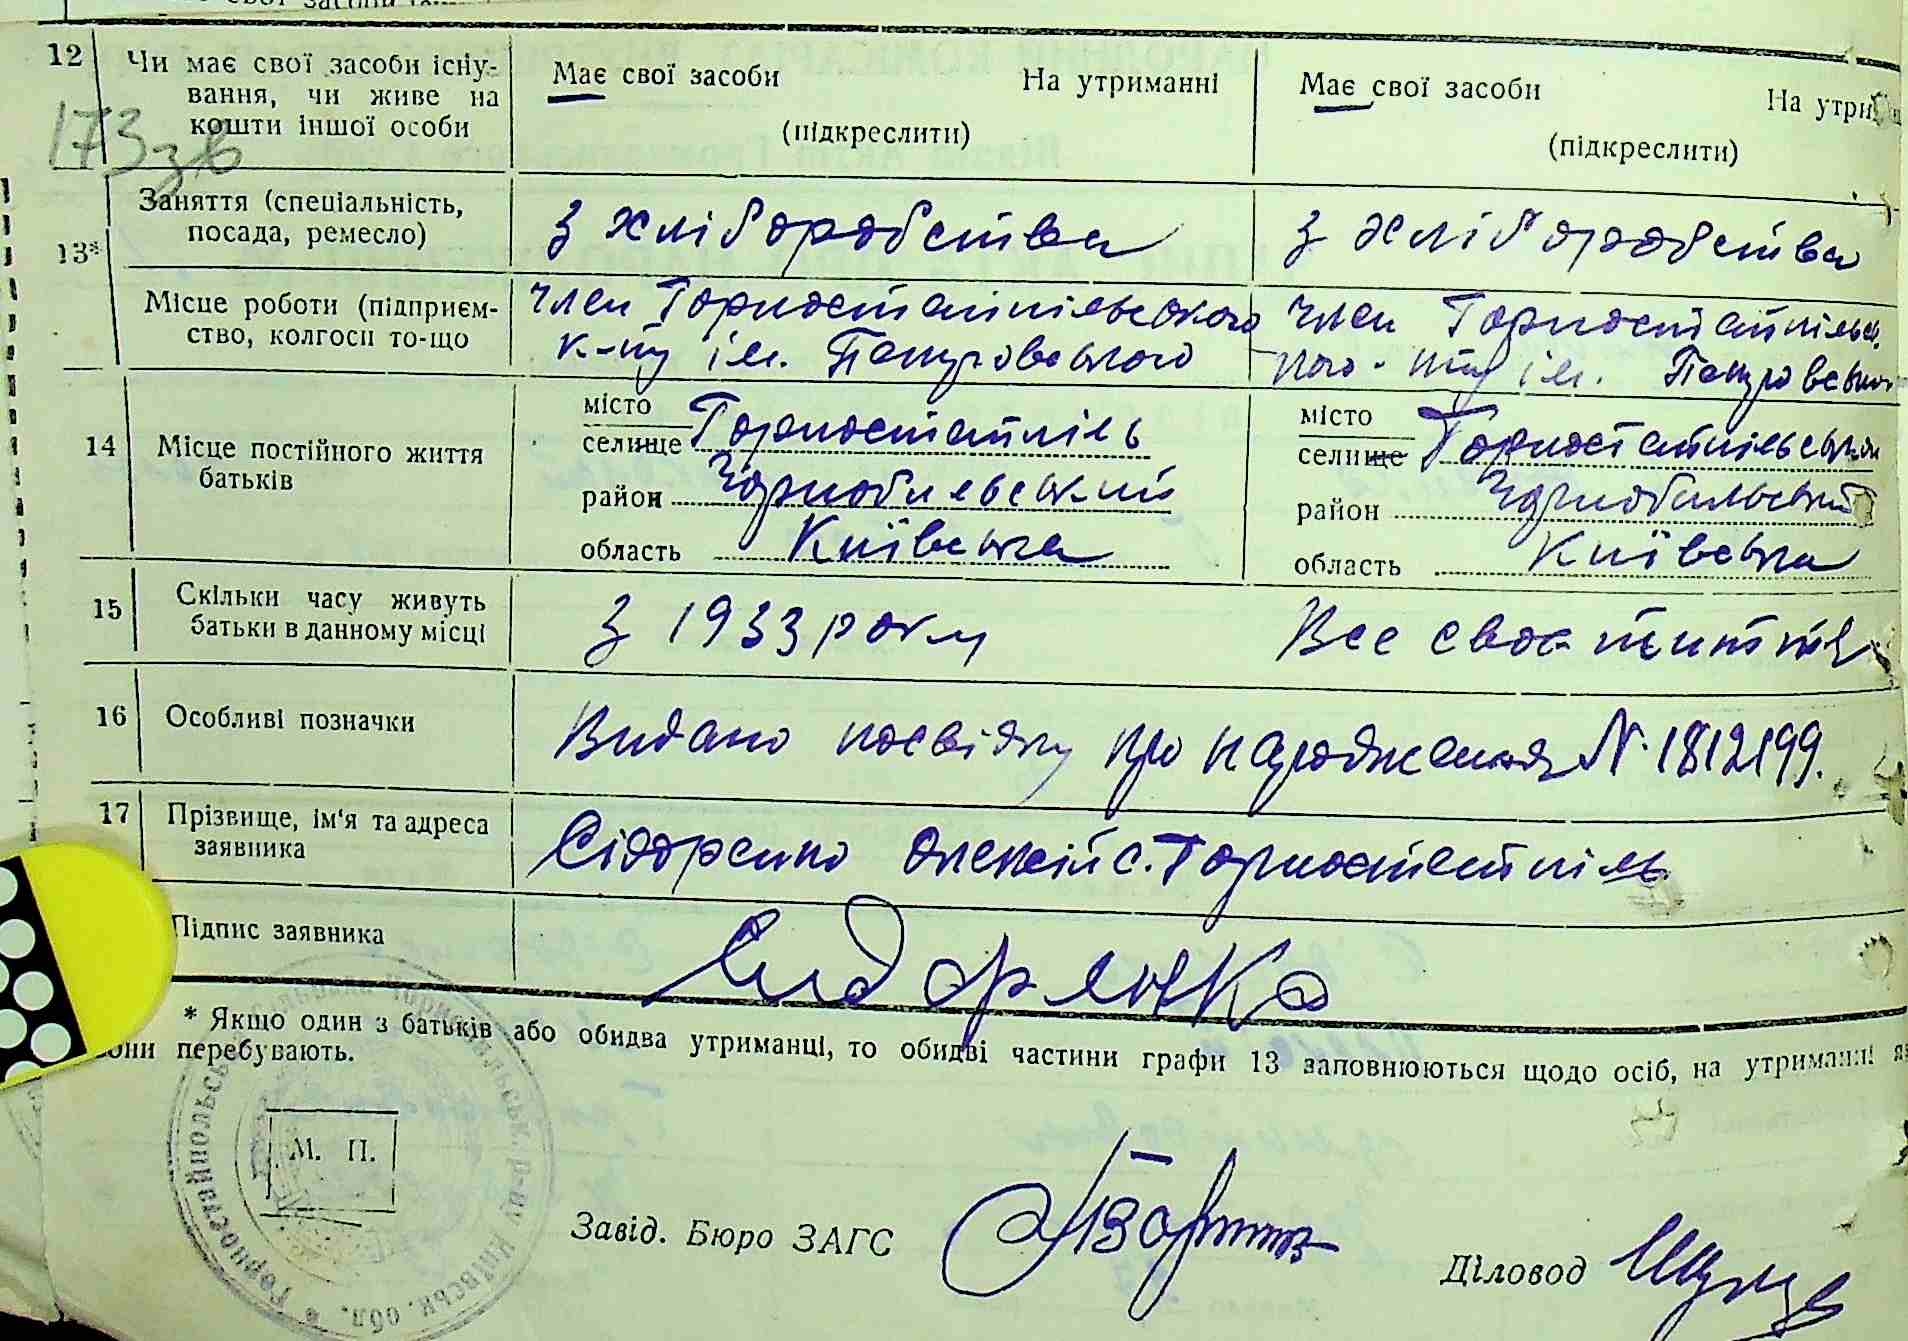 12
Чи має свої засоби існу-
вання, чи живе на
кошти іншої особи
Має свої засоби На утриманні
(підкреслити)
Має свої засоби На утри
(підкреслити)
173 зв
13*
Заняття (спеціальність,
посада, ремесло)
З хліборобства
З хліборобства
Місце роботи (підприєм-
ство, колгосп то-що
член Горностайпільського
к-пу ім. Петровського
член Горностайпільсь.
ім. Петровського
14
Місце постійного життя
батьків
місто
селище Горностайпіль
район Чорнобильський
область Київська
місто
селище Горностайпільська
район Чорнобильський
область Київська
15
Скільки часу живуть
батьки в данному місці
З 1933 року
Все своє життя
16
Особливі позначки
Видано посвідку про народження N 1812199.
17
Прізвище, ім'я та адреса
заявника
Сідоренко Олексій с. Горностайпіль
Підпис заявника
Сидоренко
* Якщо один з батьків або обидва утриманці, то обидві частини графи 13 заповнюються щодо осіб, на утриманні як
вони перебувають.
М. П.
Завід. Бюро ЗАГС
Діловод